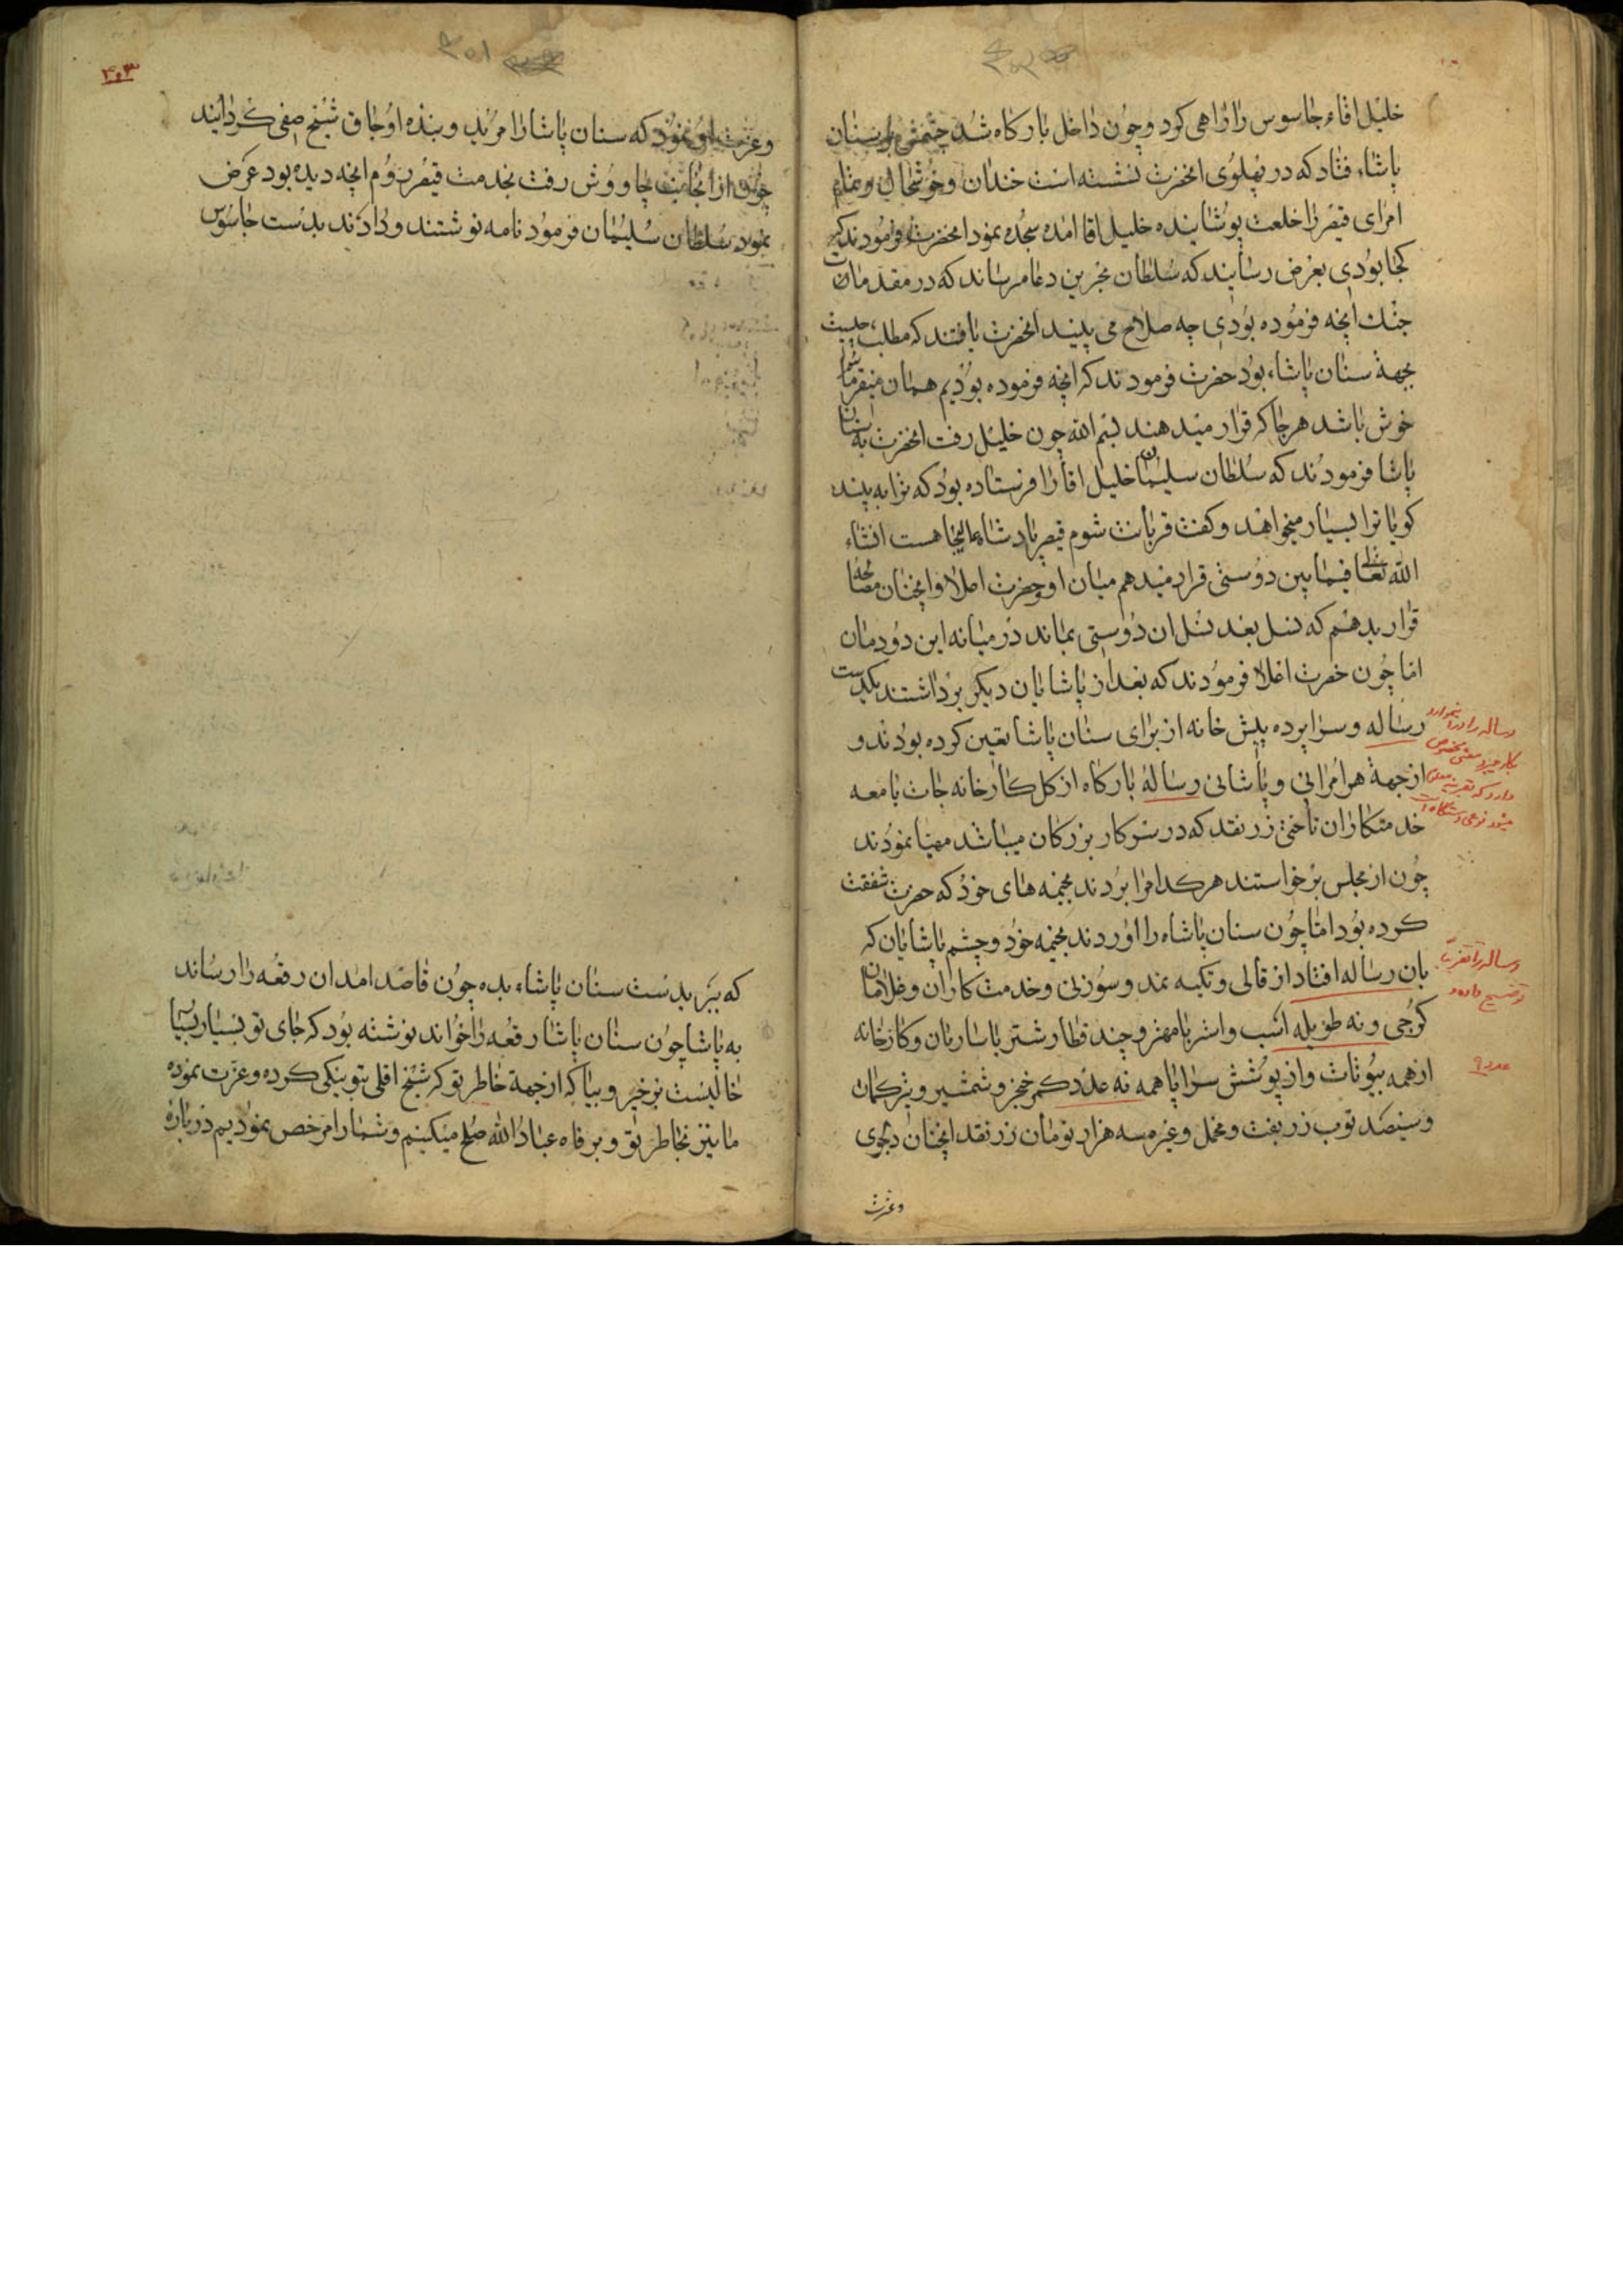 خلیل اقاء جاسوس را راهی کرد و چون داخل بارکاه شد چشمش بر سنان
پاشاء فتاد که در پهلوی انحضرت نشسته است خندان و خوشحال و تمام
امرای قیصر را خلعت پوشانیده خلیل اقا امده سجده نمود انحضرت فرمودند که
کجا بودی بعرض رسانید که سلطان مجرین دعا میرساند که در مقدمات
جنك انچه فرموده بودی چه صلاح می بینید انحضرت یافتند که مطلب چیست
بجهة سنان پاشاء بود حضرت فرمودند که انچه فرموده بودیم همان
خوش باشد هر جا که قرار میدهند بسم الله چون خلیل رفت انحضرت به سنان
پاشا فرمودند که سلطان سلیمان خلیل اقا را فرستاده بود که ترا به بیند
کویا ترا بسیار میخواهد و کفت قربانت شوم قیصر پادشاه هست انشاء
الله تعالی فیمابین دوستی قرار میدهم میان او و حضرت اعلا و انچنان مصالحه
قرار بدهم که نسل بعد نسل ان دوستی بماند در میانه این دودمان
اما چون حضرت اعلا فرمودند که بعد از پاشایان دیکر برداشتند یکدست
رساله و سراپرده پیش خانه از برای سنان پاشا تعین کرده بودند و
از جهة هر امرائی و پاشائی رسالهٔ بارکاه از کل کارخانه جات با معه
خدمتکاران تا حتی زر نقد که در سرکار بزرکان میباشد مهیا نمودند
چون از مجلس برخواستند هر کدام را بردند بخیمه های خود که حضرت شفقت
کرده بود اما چون سنان پاشاه را اوردند بخیمه خود و چشم پاشایان که
بان رساله افتاد از قالی و تکیه نمد و سوزنی و خدمت کاران و غلامان
کرجی و نه طویله اسب و استر با مهتر و چند قطار شتر با ساربان و کارخانه
از همه بیوتات و از پوشش سراپا همه نه عدد کمر خنجر و شمشیر و ترکمان
و سیصد توپ زربفت و مخمل و غیره سه هزار تومان زر نقد انچنان دلجوی
وعزت
رساله را در
رساله را تقریبا
توضیح داده
عدد ۹
۴۰۳
۴۰۱
وعزت او نمود که سنان پاشا را مرید و بنده اوجاق شیخ صفی کردانید
چون از انجانب چاووش رفت بخدمت قیصر روم انچه دیده بود عرض
نمود سلطان سلیمان فرمود نامه نوشتند و دادند بدست جاسوس
که ببر بدست سنان پاشاء بده چون قاصد امد ان رقعه را رساند
به پاشا چون سنان پاشا رقعه را خواند نوشته بود که جای تو بسیار بسیار
خالیست برخیز و بیا که از جهة خاطر تو که شیخ اقلی بتو نیکی کرده و عزت نموده
ما نیز بخاطر تو و بر فاه عباد الله صلح میکنیم و شما را مرخص نمودیم در باره